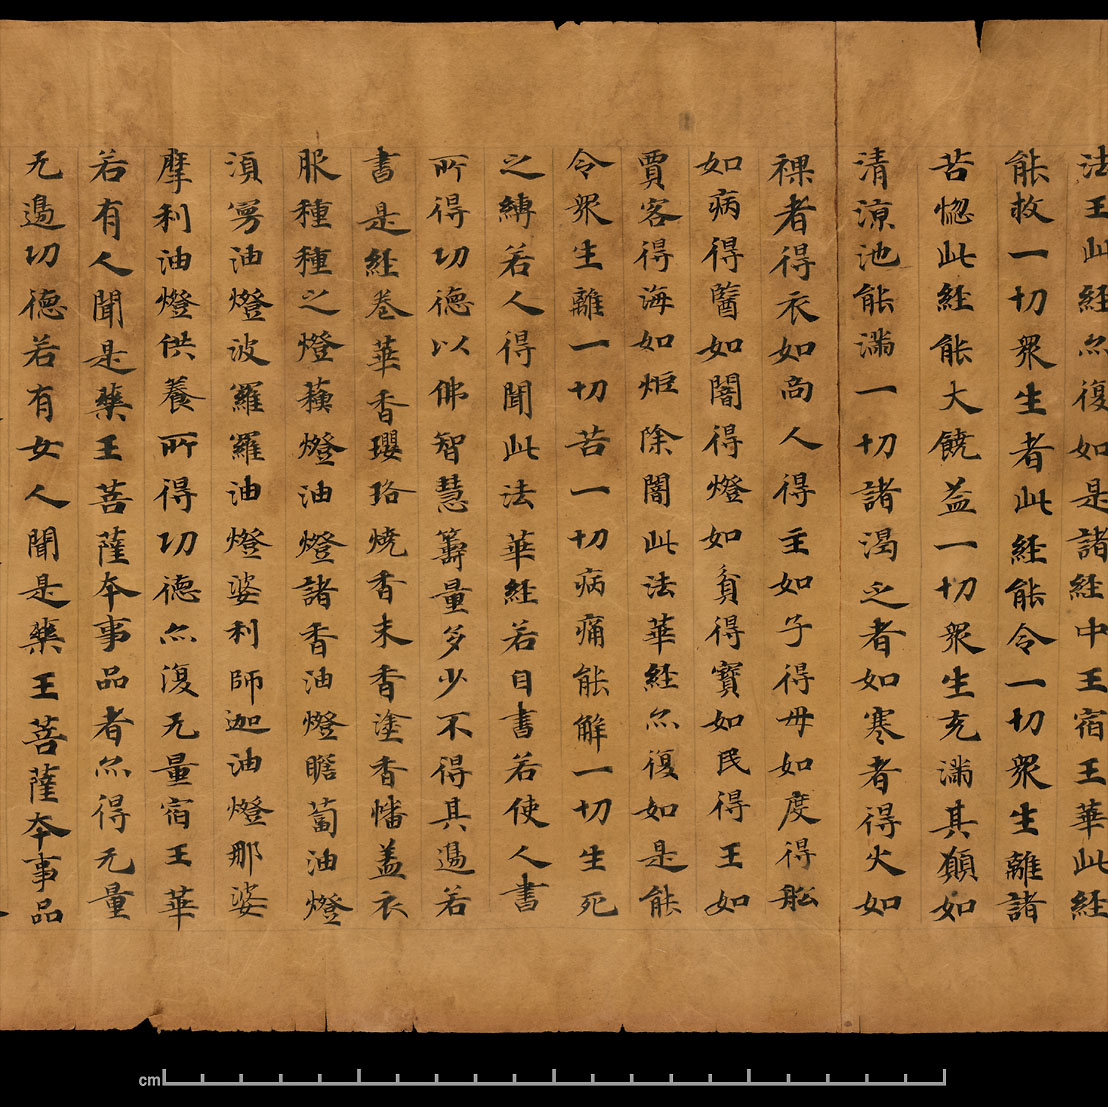 法王此經亦復如是諸經中王宿王華此經
能救一切衆生者此經能令一切衆生離諸
苦惱此經能大饒益一切衆生充滿其願如
清涼池能滿一切諸渴乏者如寒者得火如
裸者得衣如商人得主如子得母如度得舩
如病得醫如闇得燈如貧得寶如民得王如
賈客得海如炬除闇此法華經亦復如是能
令衆生離一切苦一切病痛能解一切生死
之縛若人得聞此法華經若自書若使人書
所得功德以佛智慧籌量多少不得其邊若
書是經卷華香瓔珞燒香末香塗香幡盖衣
服種種之燈蘇燈油燈諸香油燈瞻蔔油燈
湏曼油燈波羅羅油燈婆利師迦油燈那婆
摩利油燈供養所得功德亦復无量宿王華
若有人聞是藥王菩薩本事品者亦得无量
无邊功德若有女人聞是藥王菩薩本事品